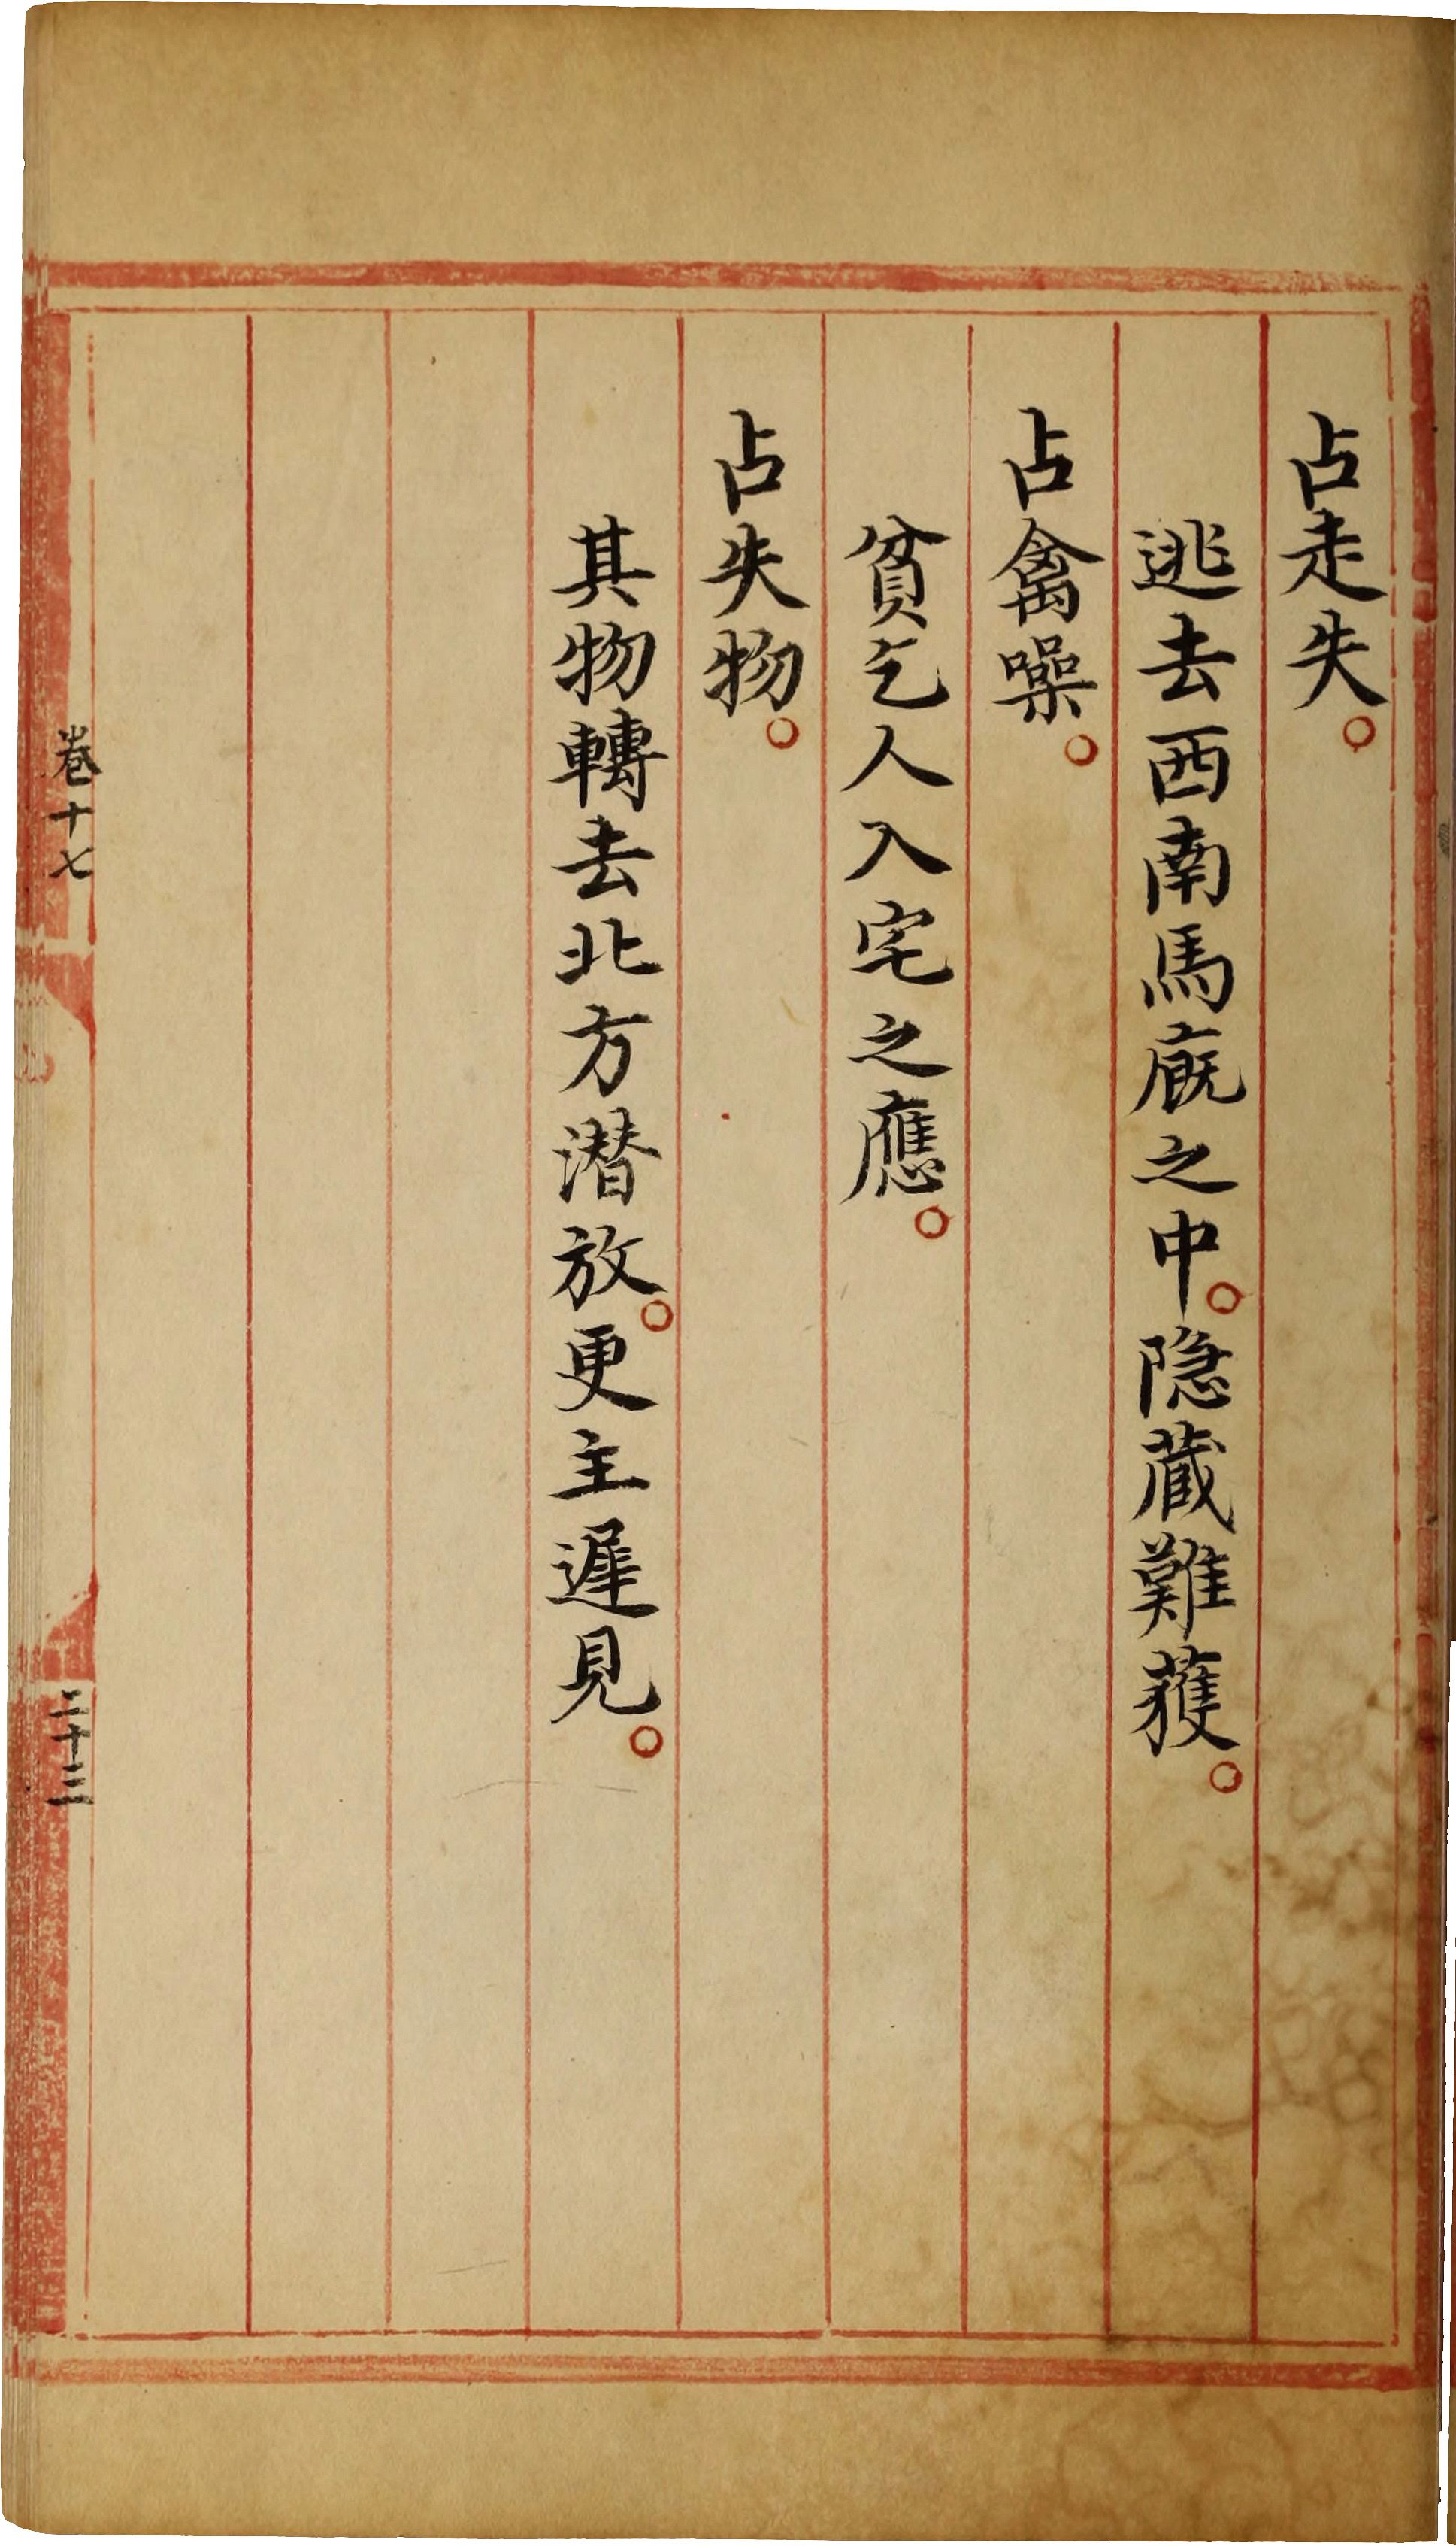 占走失。
逃去西南馬廐之中。隐藏難獲。
占禽噪。
貧乞人入宅之應。
占失物。
其物轉去北方潜放。更主遲見。
卷十七
二十三